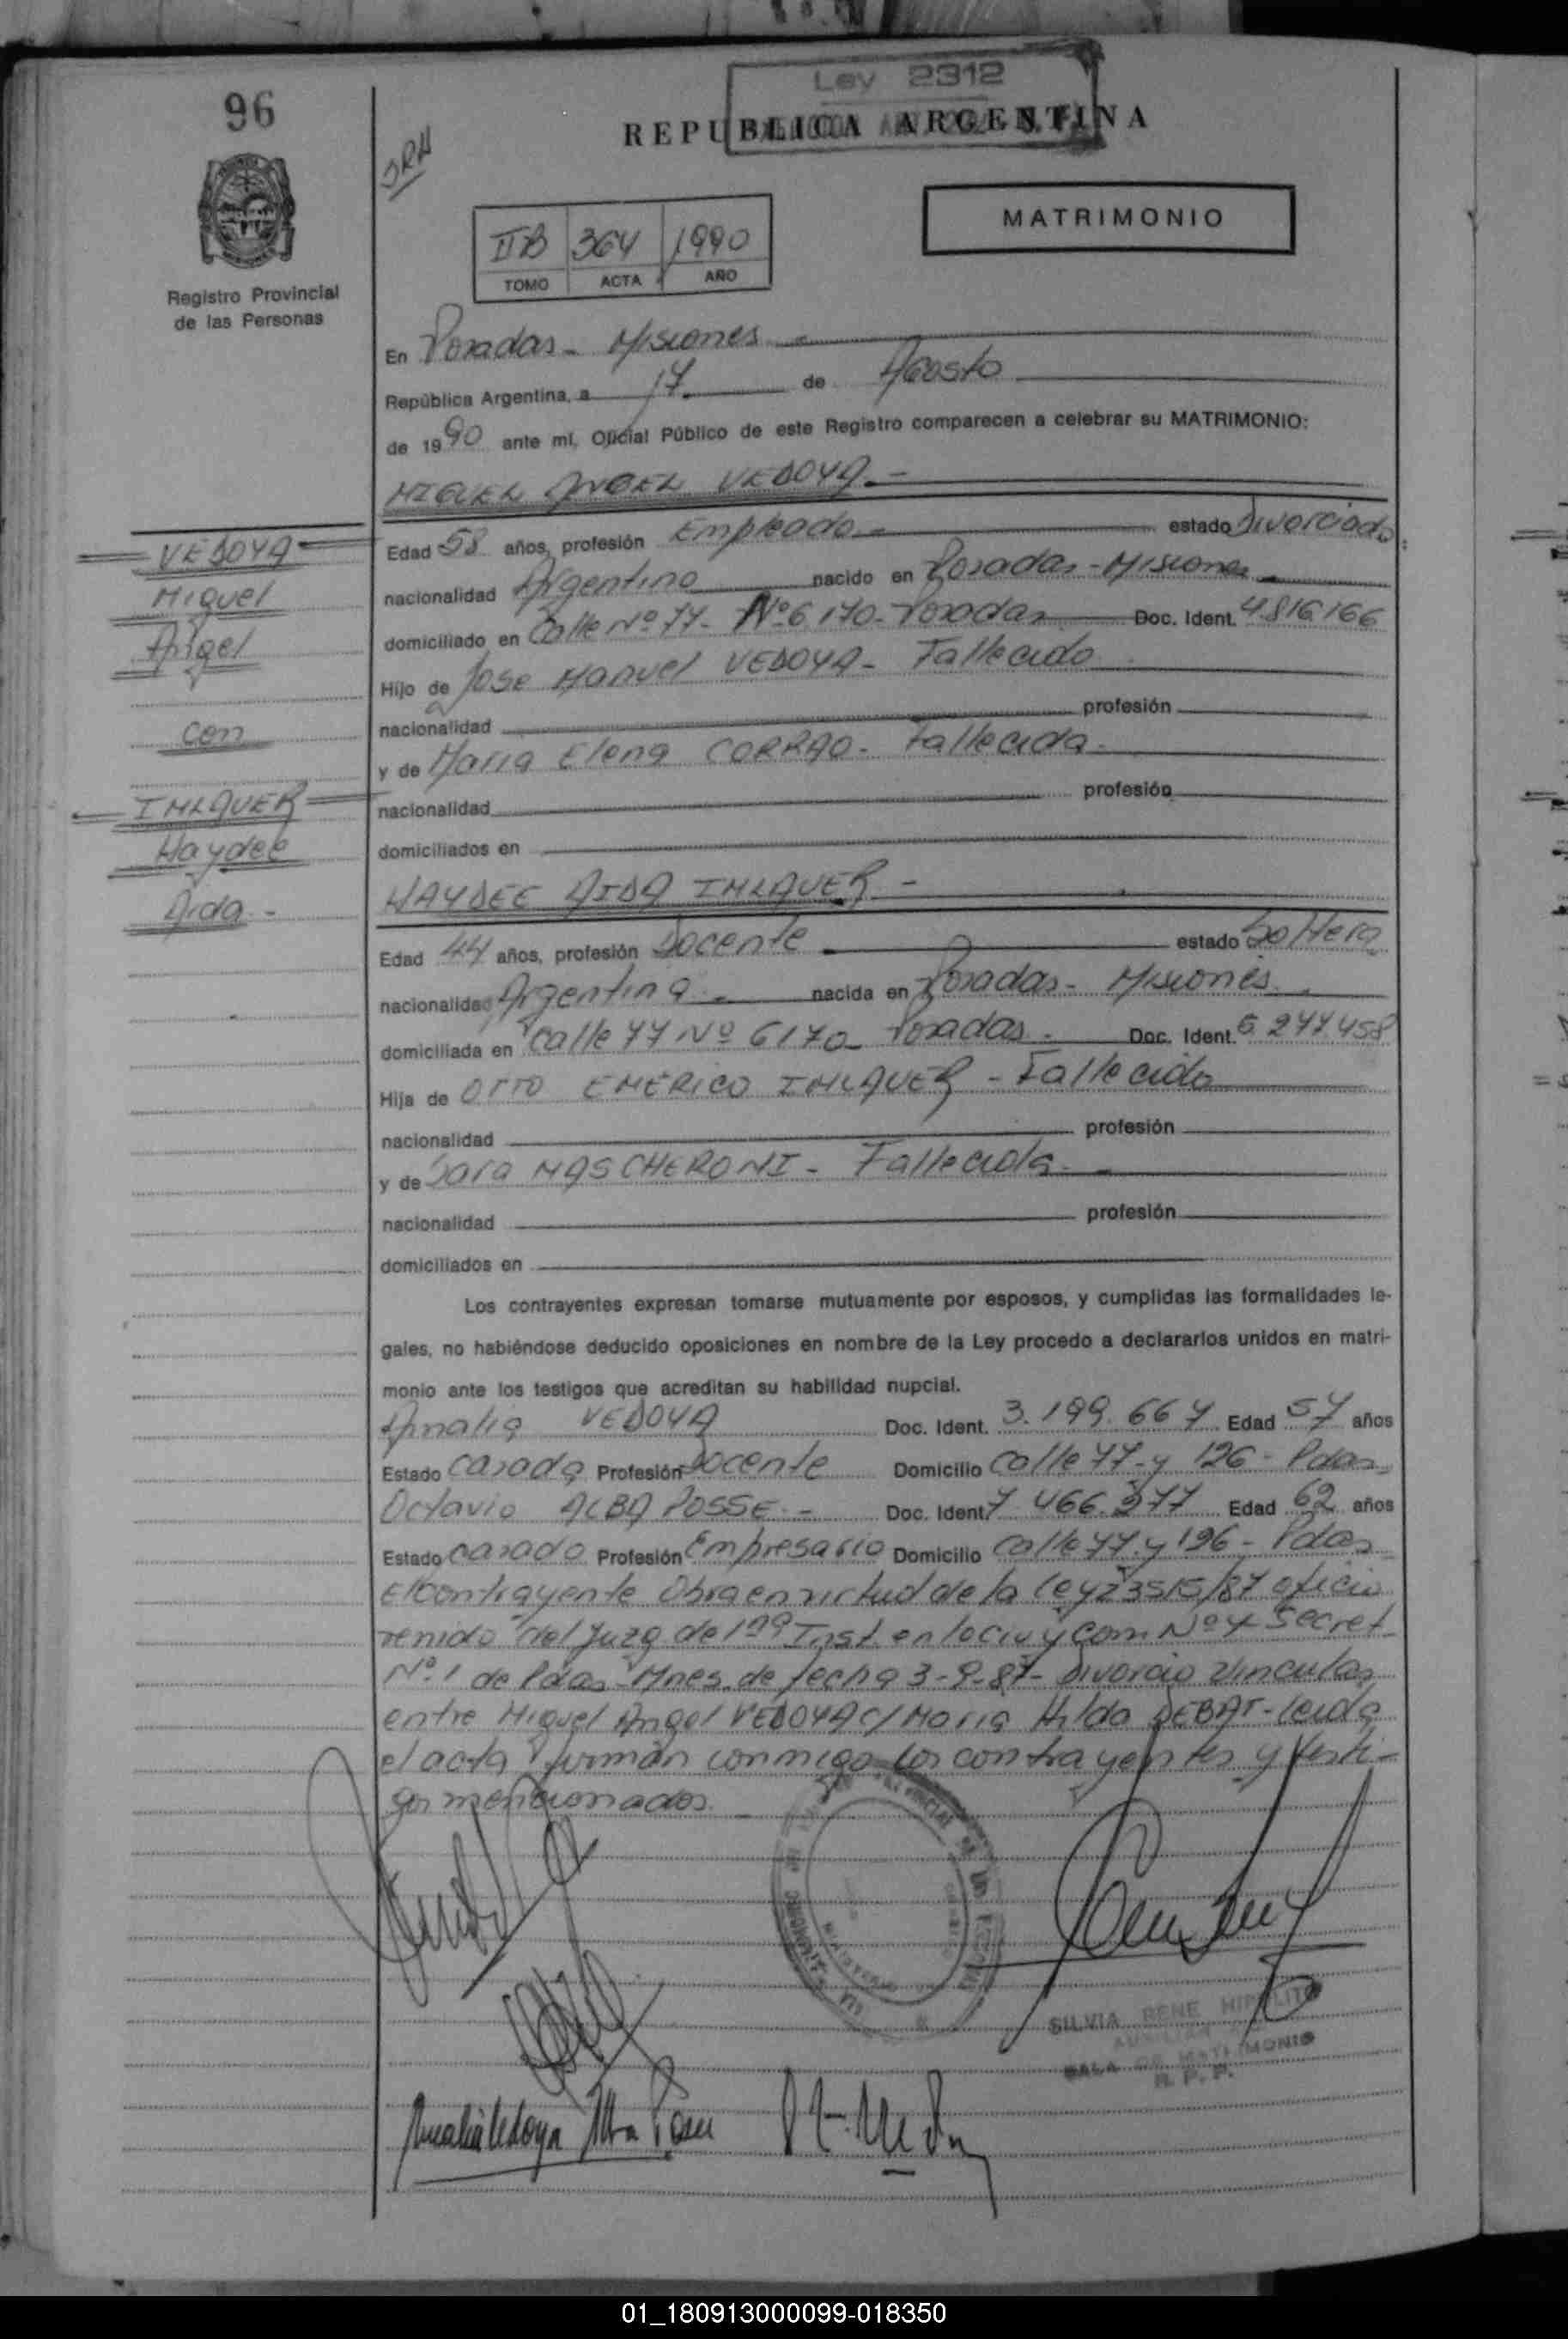 Ley 2312
96
REPUBLICA ARGENTINA
MATRIMONIO
IIB 364 1990
TOMO ACTA AÑO
Registro Provincial
de las Personas
En Posadas - Misiones
República Argentina, a 17 de Agosto
de 1990 ante mí, Oficial Público de este Registro comparecen a celebrar su MATRIMONIO:
MIGUEL ANGEL VEDOYA.-
Edad 58 años, profesión Empleado estado Divorciado
nacionalidad Argentina nacido en Posadas - Misiones
domiciliado en Calle Nº 77 - Nº 6170 - Posadas Doc. Ident. 4.816.166
Hijo de Jose Manuel VEDOYA - Fallecido
nacionalidad profesión
y de Maria Elena CORRAO - Fallecida -
nacionalidad profesión
domiciliados en
VEDOYA
Miguel
Angel
con
IMLAUER
Haydee
Aida -
HAYDEE AIDA IMLAUER -
Edad 44 años, profesión Docente estado Soltera
nacionalidad Argentina nacida en Posadas - Misiones
domiciliada en Calle 77 Nº 6170 - Posadas - Doc. Ident. 5.277.458
Hija de OTTO EMERICO IMLAUER - Fallecido
nacionalidad profesión
y de Sara MASCHERONI - Fallecida -
nacionalidad profesión
domiciliados en
Los contrayentes expresan tomarse mutuamente por esposos, y cumplidas las formalidades le-
gales, no habiéndose deducido oposiciones en nombre de la Ley procedo a declararlos unidos en matri-
monio ante los testigos que acreditan su habilidad nupcial.
Amalia VEDOYA Doc. Ident. 3.199.667 Edad 57 años
Estado Casada Profesión Docente Domicilio Calle 77 y 126 - Pdas
Octavio ALBA POSSE - Doc. Ident 7.466.377 Edad 62 años
Estado Casado Profesión Empresario Domicilio Calle 77 y 126 - Pdas
El contrayente Obra en virtud de la ley 23515/87 oficio
venido del Juzg. de 1ra Inst. en lo civ y com Nº 4 Secret
Nº 1 de Pdas - Mnes. de fecha 3-9-87 - Divorcio Vincular
entre Miguel Angel VEDOYA c/ Maria Hilda DEBAT - Leida
el acta firman conmigo los contrayentes y testi-
gos mencionados.
SILVIA RENE HIPOLITO
AUXILIAR
SALA DE MATRIMONIO
R. P. P.
Amalia Vedoya Alba Posse
01_180913000099-018350